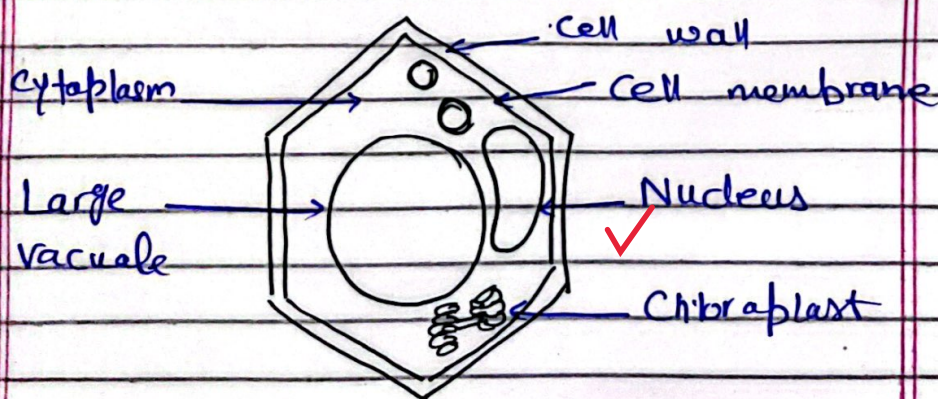 Cell wall
Cytoplasm
Cell membrane
Large
vacuole
Nucleus
Chloroplast